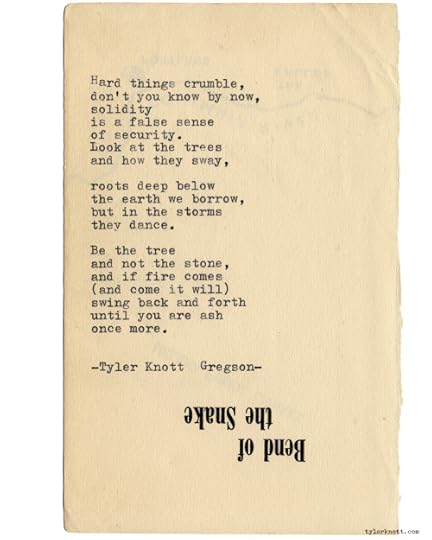 Hard things crumble,
don't you know by now,
solidity
is a false sense
of security.
Look at the trees
and how they sway,
roots deep below
the earth we borrow,
but in the storms
they dance.
Be the tree
and not the stone,
and if fire comes
(and come it will)
swing back and forth
until you are ash
once more.
-Tyler Knott Gregson-
Bend of
the Snake
tylerknott.com